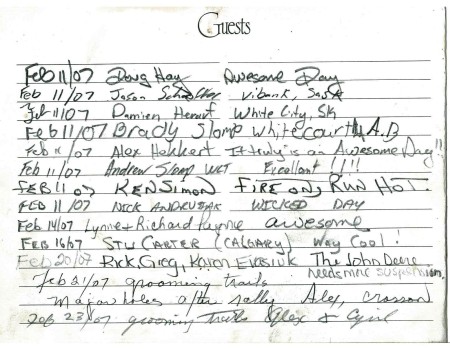 Guests
Feb 11/07 Doug Hay Awesome Day
Feb 11/07 Jason Vibank, Sask
Feb 11/07 Damien White City, SK
Feb 11/07 Brady Slomp Whitecourt A.B
Feb 11/07 Alex Hekkert It truly is an Awesome Day!!
Feb 11/07 Andrew Slomp WCT Excellent!!!!
FEB 11 07 KEN SIMON FIRE ON, RUN HOT.
FEB 11/07 NICK WICKED DAY
Feb 14/07 Lynne & Richard awesome
FEB 16/07 STU CARTER (CALGARY) Way Cool!
Feb 20/07 Rick, Greg, Karen The John Deere
needs more suspension.
Feb 21/07 grooming trails
Major holes after rally Alex,
Feb 23/07 grooming trails Alex &